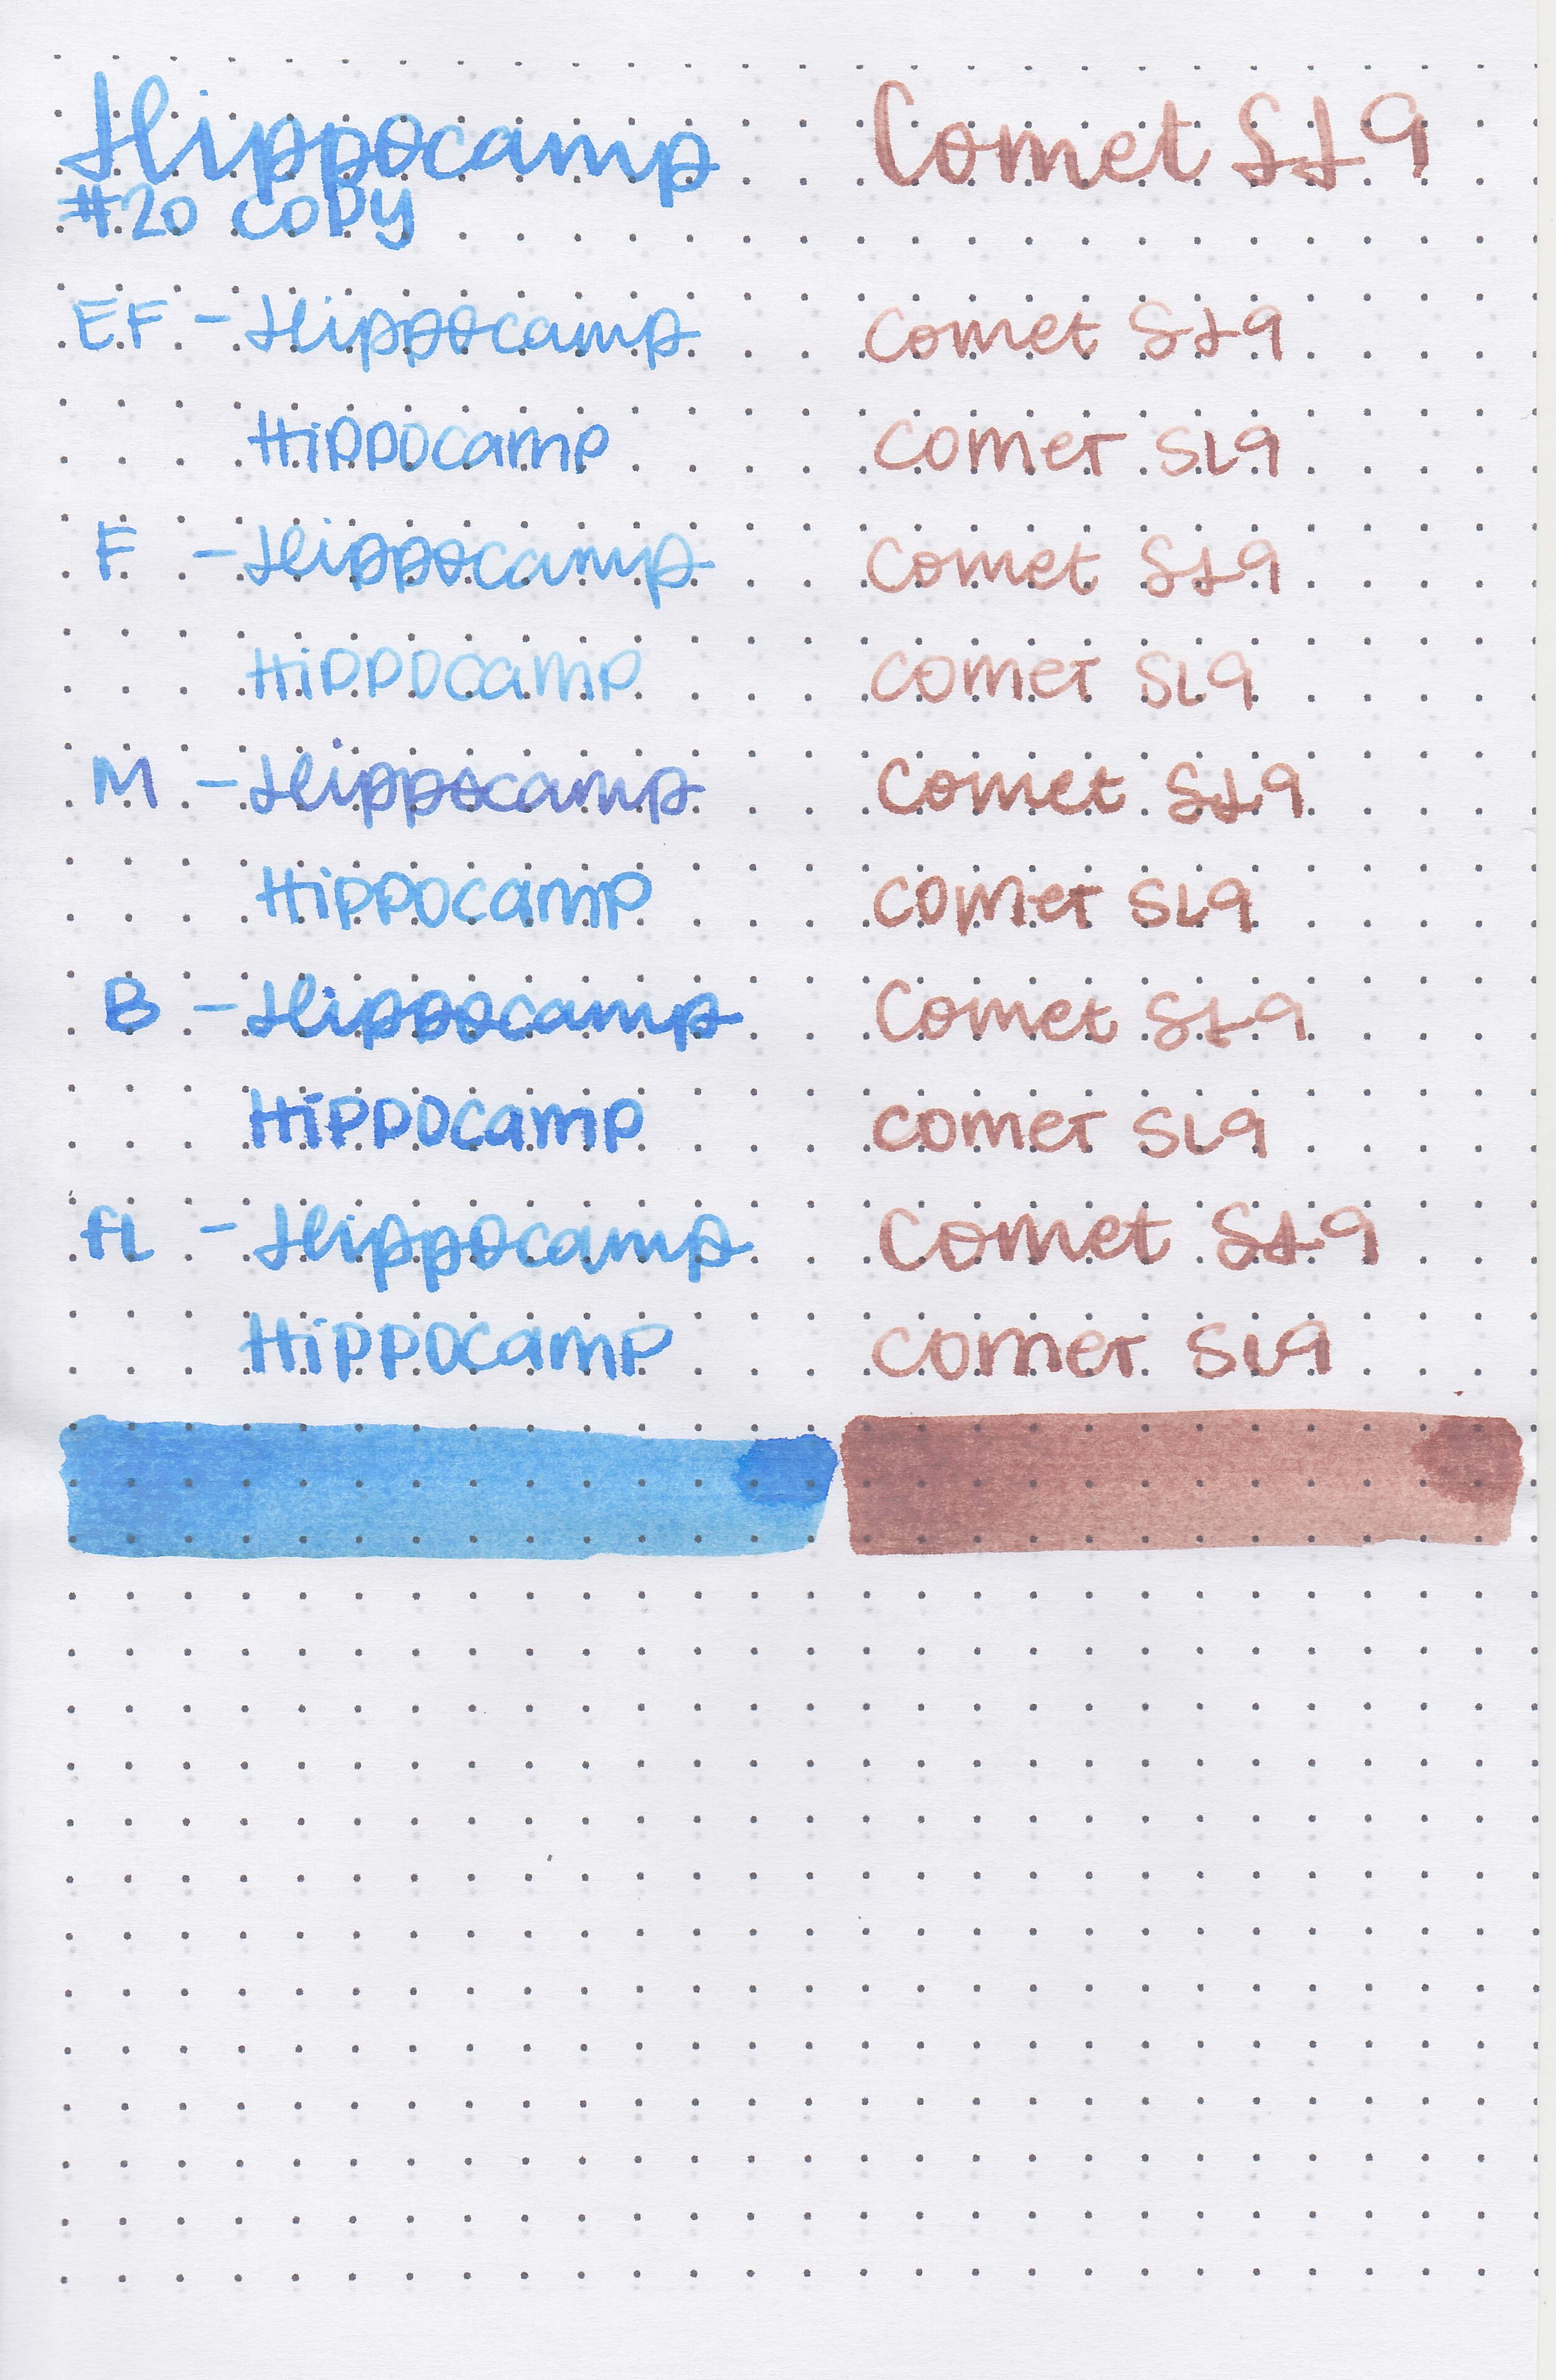 Hippocamp Comet SL9
#20 copy
EF - Hippocamp Comet SL9
Hippocamp Comet SL9
F - Hippocamp Comet SL9
Hippocamp Comet SL9
M - Hippocamp Comet SL9
Hippocamp Comet SL9
B - Hippocamp Comet SL9
Hippocamp Comet SL9
fL - Hippocamp Comet SL9
Hippocamp Comet SL9